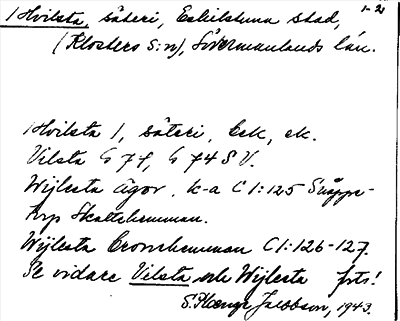 1-2
1 Hvilsta, säteri, Eskilstuna stad,
(Klosters s:n), Södermanlands län.
1 Hvilsta 1, säteri, Esk, ek.
Vilsta G 74, G 74 S V.
Wijlesta ägor, k-a C 1:125 Snäppe-
torp Skattehemman.
Wijlesta Cronohemman C 1:126-127.
Se vidare Vilsta och Wijlesta forts!
Jacobson, 1943.